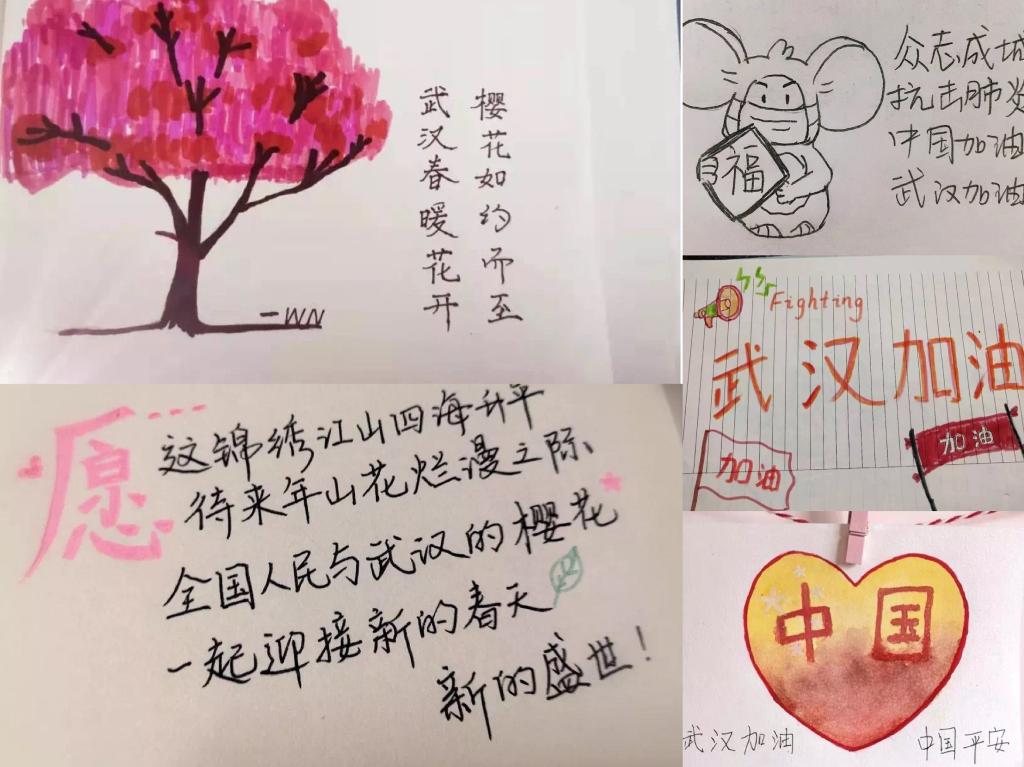 樱花如约而至
武汉春暖花开
-WN
众志成城
抗击肺炎
中国加油
武汉加油
Fighting
武汉加油
加油
加油
愿
这锦绣江山四海升平
待来年山花烂漫之际、
全国人民与武汉的樱花
一起迎接新的春天
新的盛世!
福
中国
武汉加油
中国平安